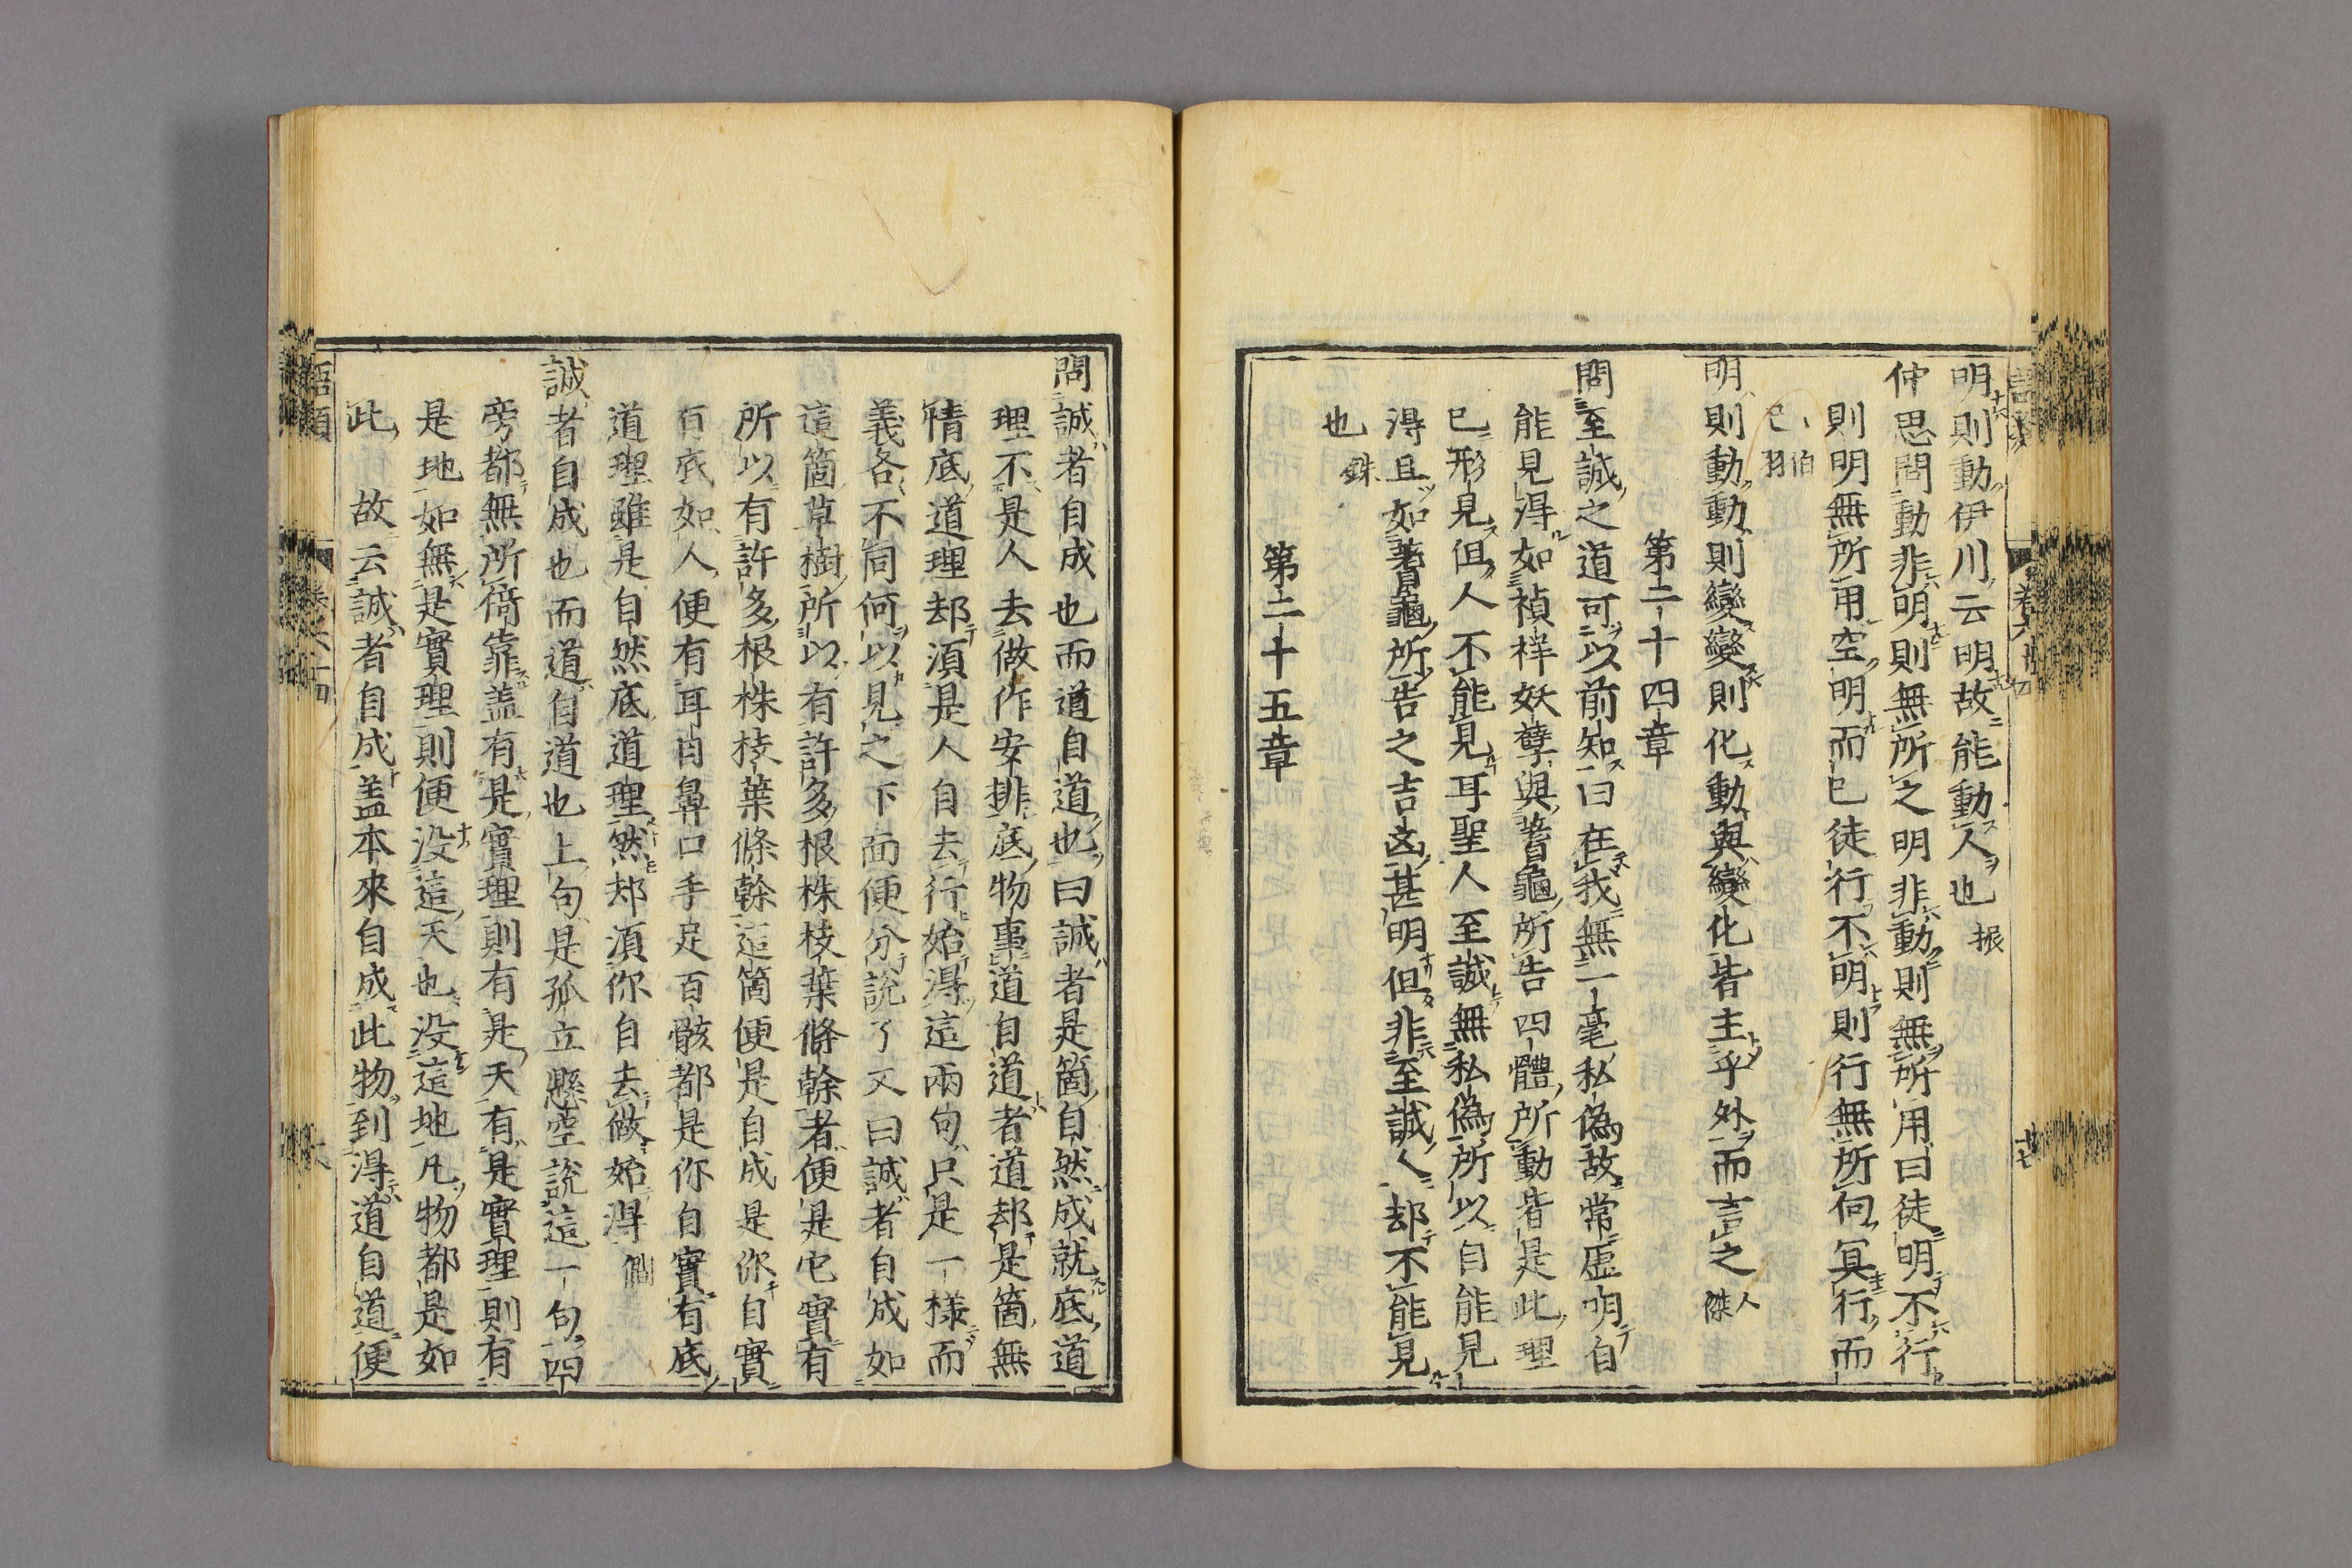 明則動伊川云明故能動人也振
仲思問動非明則無所之明非動則無所用曰徒明不行
則明無所用空明而已徒行不明則行無所向冥行而
已伯羽
明則動動則變變則化動與變化皆主乎外而言之人傑
第二十四章
問至誠之道可以前知曰在我無一毫私偽故常虛明自
能見得如禎祥妖孽與蓍龜所告四體所動皆是此理
已形見但人不能見耳聖人至誠無私偽所以自能見
得且如蓍龜所告之吉凶甚明但非至誠人却不能見
也銖
第二十五章
問誠者自成也而道自道也曰誠者是箇自然成就底道
理不是人去做作安排底物事道自道者道却是箇無
情底道理却須是人自去行始得這兩句只是一樣而
義各不同何以見之下面便分說了又曰誠者自成如
這箇草樹所以有許多根株枝葉條幹者便是它實有
所以有許多根株枝葉條幹這箇便是自成是你自實
有底如人便有耳目鼻口手足百骸都是你自實有底
道理雖是自然底道理然却須你自去做始得僩
誠者自成也而道自道也上句是孤立懸空說這一句四
旁都無所倚靠蓋有是實理則有是天有是實理則有
是地如無是實理則便没這天也没這地凡物都是如
此故云誠者自成蓋本來自成此物到得道自道便